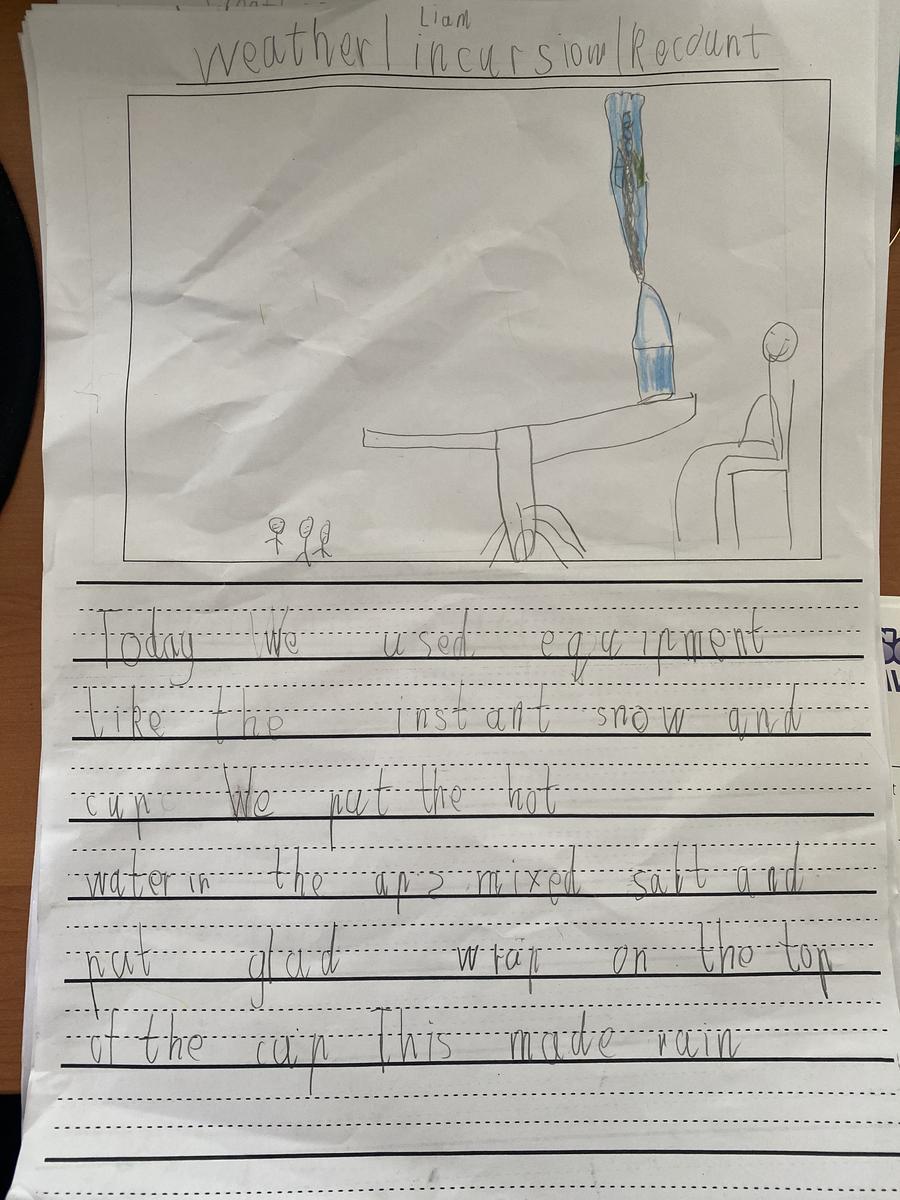 Liam
Weather| incursion/Recount
Today We used equipment
like the instant snow and
cup We put the hot
water in the cups mixed salt and
put glad wrap on the top
of the cup This made rain